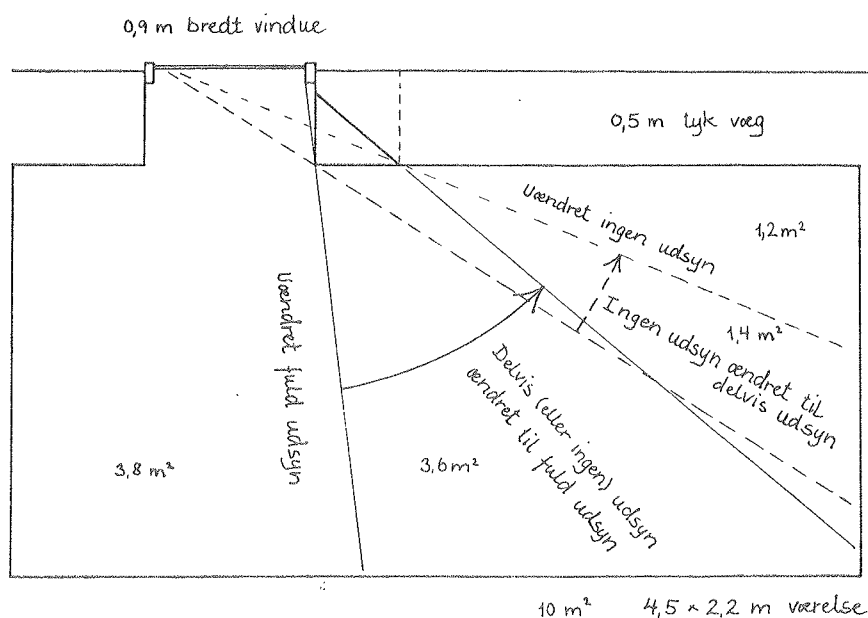 0,9 m bredt vindue
0,5 m tyk væg
Uændret ingen udsyn
1,2 m²
1,4 m²
Ingen udsyn ændret til
delvis udsyn
Uændret fuld udsyn
Delvis (eller ingen) udsyn
ændret til fuld udsyn
3,8 m²
3,6 m²
10 m² 4,5 × 2,2 m værelse